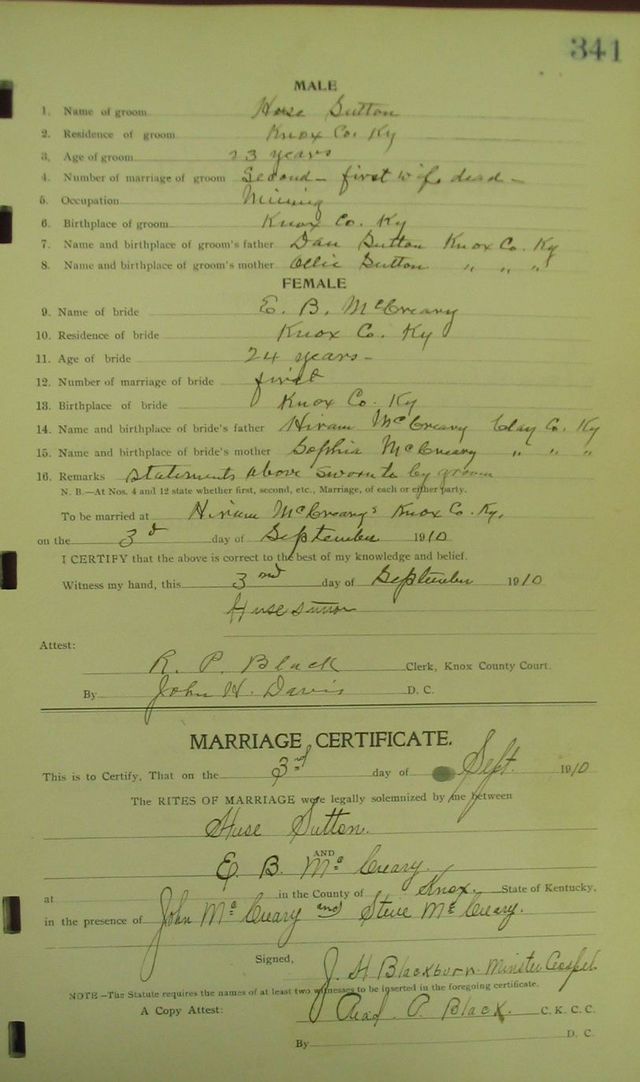 341
MALE
1. Name of groom Huse Sutton
2. Residence of groom Knox Co. Ky
3. Age of groom 23 years
4. Number of marriage of groom Second - first wife dead -
5. Occupation Mining
6. Birthplace of groom Knox Co. Ky
7. Name and birthplace of groom's father Dan Sutton Knox Co. Ky
8. Name and birthplace of groom's mother Ollie Sutton " " "
FEMALE
9. Name of bride E. B. McCreary
10. Residence of bride Knox Co. Ky
11. Age of bride 24 years -
12. Number of marriage of bride first
13. Birthplace of bride Knox Co. Ky
14. Name and birthplace of bride's father Hiram McCreary Clay Co. Ky
15. Name and birthplace of bride's mother Sophia McCreary " " "
16. Remarks Statements above sworn to by groom
N. B.—At Nos. 4 and 12 state whether first, second, etc., Marriage, of each or either party.
To be married at Hiram McCreary's Knox Co. Ky,
on the 3d day of September 1910
I CERTIFY that the above is correct to the best of my knowledge and belief.
Witness my hand, this 3nd day of September 1910
Huse Sutton
Attest:
R. P. Black Clerk, Knox County Court.
By John H. Davis D. C.
MARRIAGE CERTIFICATE.
This is to Certify, That on the 3rd day of Sept. 1910
The RITES OF MARRIAGE were legally solemnized by me between
Huse Sutton.
AND
E. B. McCreary.
at in the County of Knox. State of Kentucky,
in the presence of John McCreary and Steve McCreary.
Signed, J. H Blackburn Minster Gospel
NOTE—The Statute requires the names of at least two witnesses to be inserted in the foregoing certificate.
A Copy Attest: P. Black. C. K. C. C.
By D. C.